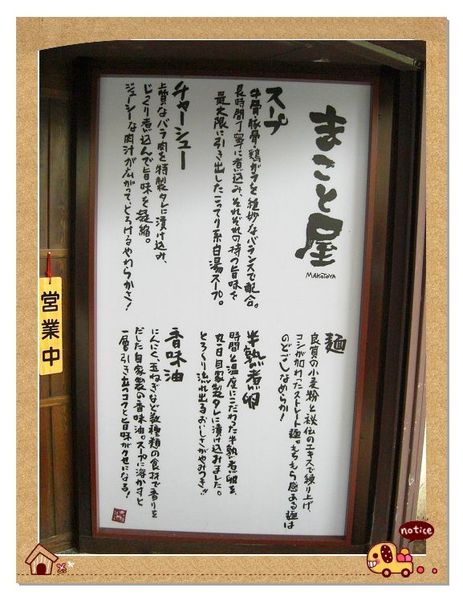 まこと屋
MAKOTOYA
スープ
牛骨豚骨鶏ガラを絶妙なバランスで配合。
長時間丁寧に煮込み、それぞれの持つ旨味を
最大限に引き出したこってり系白湯スープ。
チャーシュー
上質なバラ肉を特製タレに漬け込み
じっくり煮込んで旨味を凝縮。
ジューシーな肉汁が広がって、とろけるやわらかさ!
麺
良質の小麦粉と秘伝のエキスで練り上げ
コシが加わったストレート麺。もちもち感ある麺は
のどごしなめらか!
半熟煮卵
時間と温度にこだわった半熟煮卵を、
丸一日自家製タレに漬け込みました。
とろ〜り流れ出るおいしさがやみつき!!
香味油
にんにく、玉ねぎなど数種類の食材で香りを
だした自家製の香味油。スープに溶かすと
一層引き立つコクと旨味がクセになる!
営業中
notice